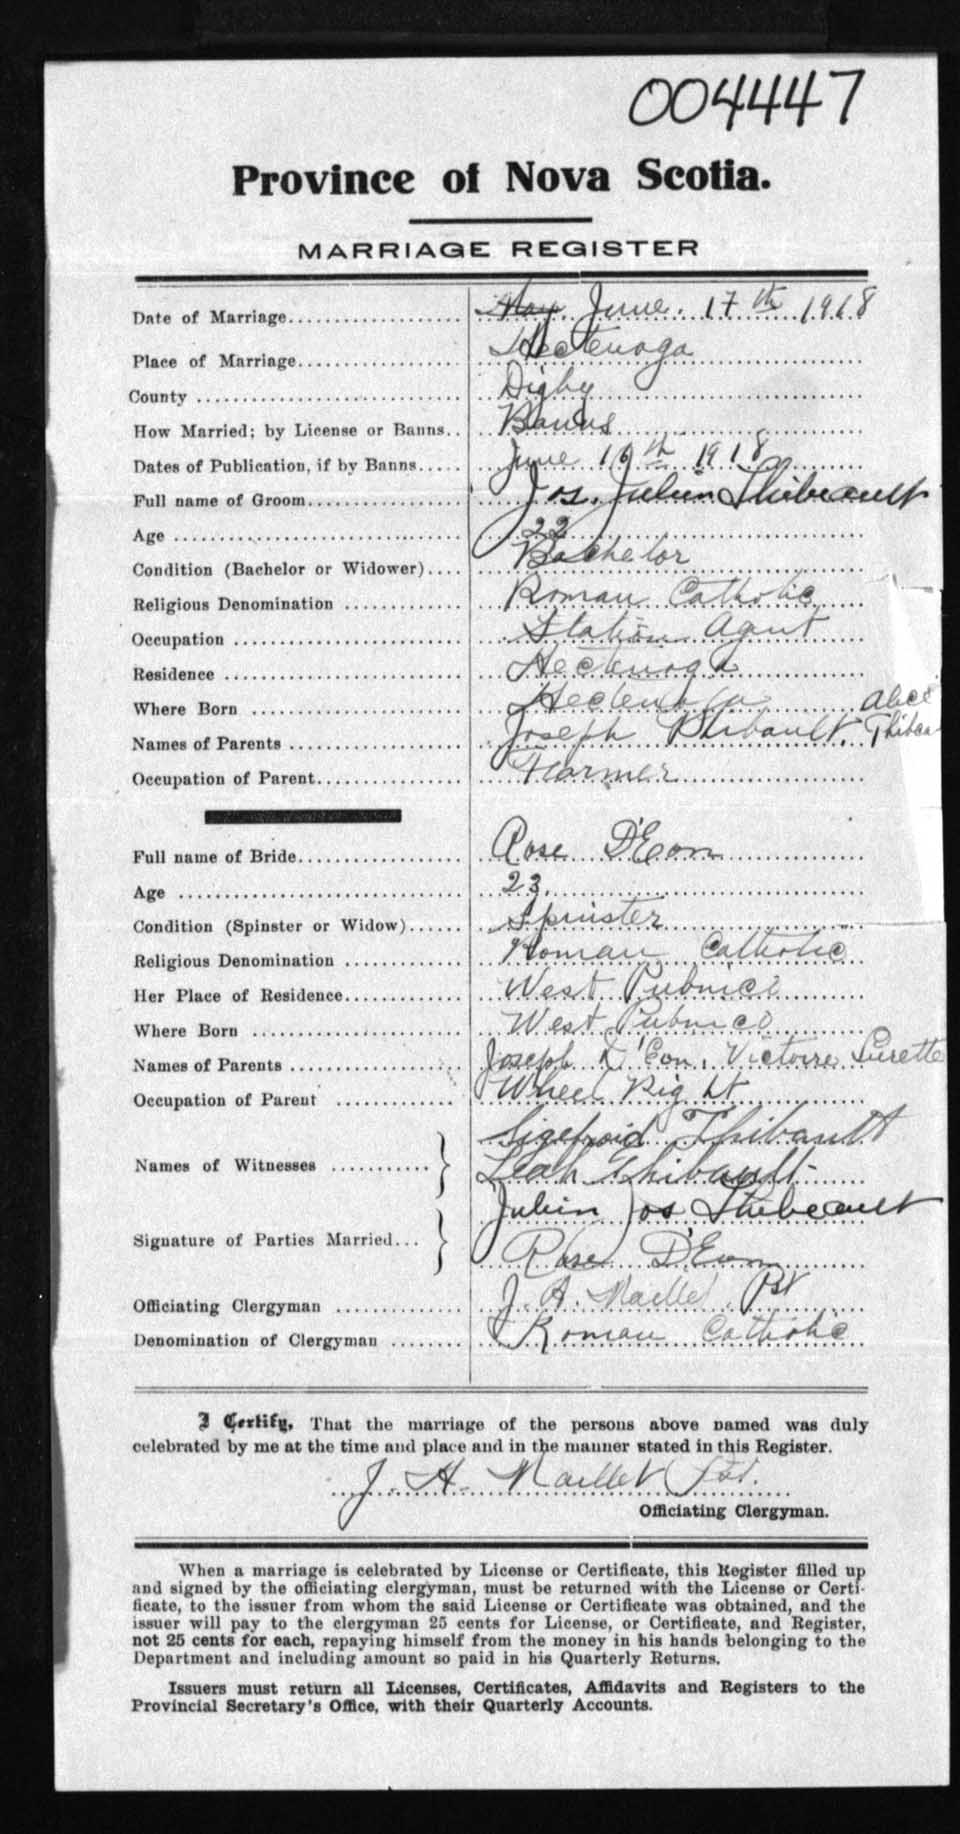 004447
Province of Nova Scotia.
MARRIAGE REGISTER
Date of Marriage.................... May June. 17th 1918
Place of Marriage................... Hectenoga
County ............................. Digby
How Married; by License or Banns.. Banns
Dates of Publication, if by Banns..... June 16th 1918
Full name of Groom.................. Jos. Julien Thibeault
Age ................................ 22
Condition (Bachelor or Widower).... Bachelor
Religious Denomination ............. Roman Catholic
Occupation ......................... Station Agent
Residence .......................... Hectenoga
Where Born ......................... Hectenoga
Names of Parents ................... Joseph Thibault. Alice Thibea
Occupation of Parent................ Farmer
Full name of Bride.................. Rose D'Eon
Age ................................ 23.
Condition (Spinster or Widow)...... Spinster
Religious Denomination ............. Roman Catholic
Her Place of Residence.............. West Pubnico
Where Born ......................... West Pubnico
Names of Parents ................... Joseph D'Eon, Victoire Surette
Occupation of Parent ............... Wheel Right
Sigefroid Thibault
Names of Witnesses ........... Leah Thibault
Julien Jos Thibeault
Signature of Parties Married... Rose D'Eon
Officiating Clergyman .............. J. A. Maillet Pst
Denomination of Clergyman ........ Roman Catholic
I Certify, That the marriage of the persons above named was duly
celebrated by me at the time and place and in the manner stated in this Register.
J. A. Maillet Pst.
Officiating Clergyman.
When a marriage is celebrated by License or Certificate, this Register filled up
and signed by the officiating clergyman, must be returned with the License or Certi-
ficate, to the issuer from whom the said License or Certificate was obtained, and the
issuer will pay to the clergyman 25 cents for License, or Certificate, and Register,
not 25 cents for each, repaying himself from the money in his hands belonging to the
Department and including amount so paid in his Quarterly Returns.
Issuers must return all Licenses, Certificates, Affidavits and Registers to the
Provincial Secretary's Office, with their Quarterly Accounts.